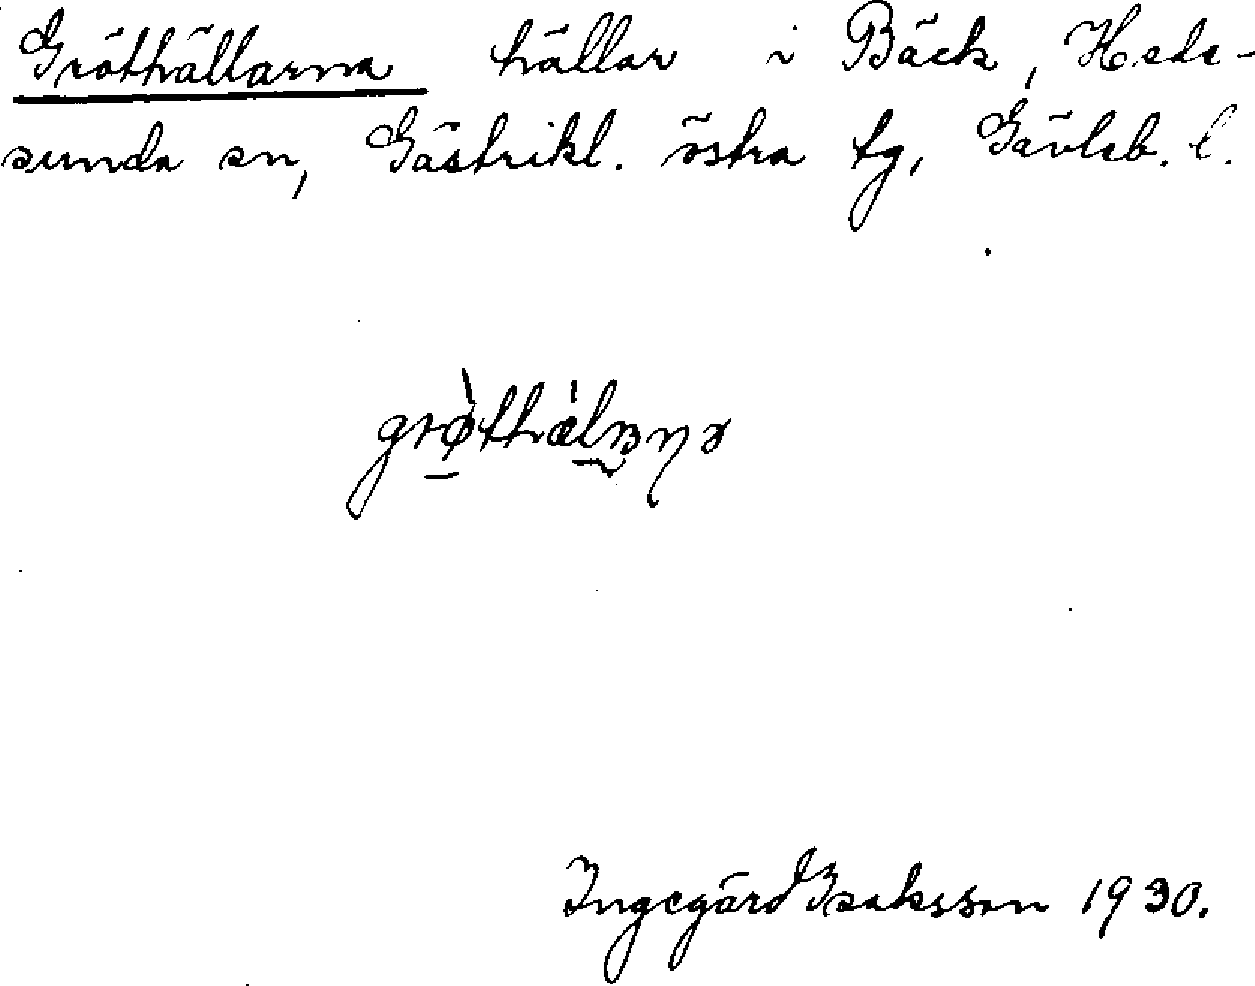 Gröthällarna hällar i Bäck, Hede-
sunda sn, Gästrikl. östra tg, Gävleb. l.
Ingegärd Isaksson 1930.